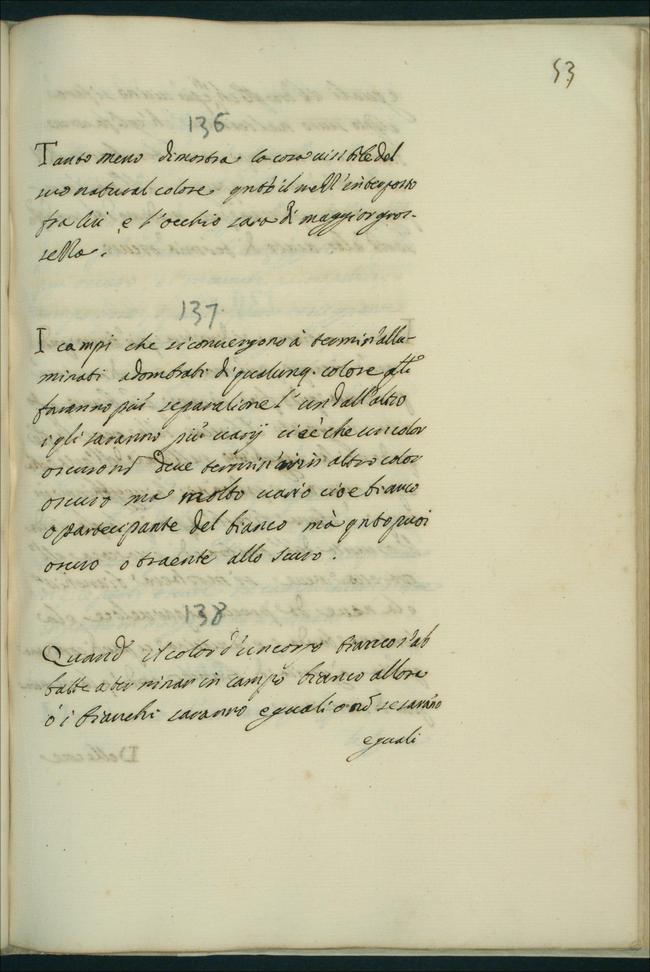 53
136
Tanto meno dimostra la cosa visibile del
suo natural colore qnto il mezzo interposto
fra lei e l'occhio sara di maggior gros-
sezza.
137
I campi che si convengono à termini allu-
minati adombrati di qualunq. colore
faranno più separatione l'un dall'altro
saranno più varij cioè che un color
oscuro nõ deve terminar in altro color
oscuro ma molto vario cioe bianco
o partecipante del bianco mà qnto puoi
oscuro o traente allo scuro.
138
Quand il color d'un corpo bianco s'ab
batte a terminar in campo bianco allora
ò i bianchi saranno eguali o nõ se sarãno
eguali